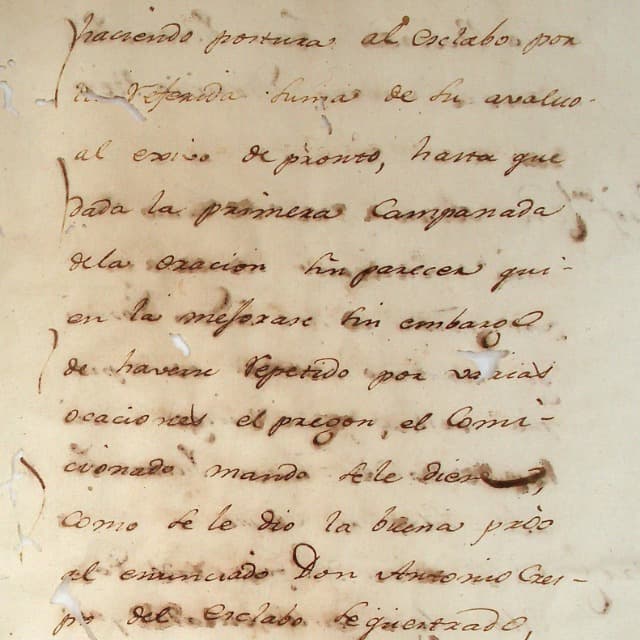 haciendo postura al esclabo por
la referida suma de su avaluo.
al exivo de pronto, hasta que
dada la primera Campanada
dela oracion sin parecer qui-
en la mejorase sin embargo
de haverse repetido por varias
ocaciones el pregon, el Comi-
cionado mando se le diera,
como se le dio la buena pro
al enunciado Don Antonio Cres-
po del esclabo sequestrado,